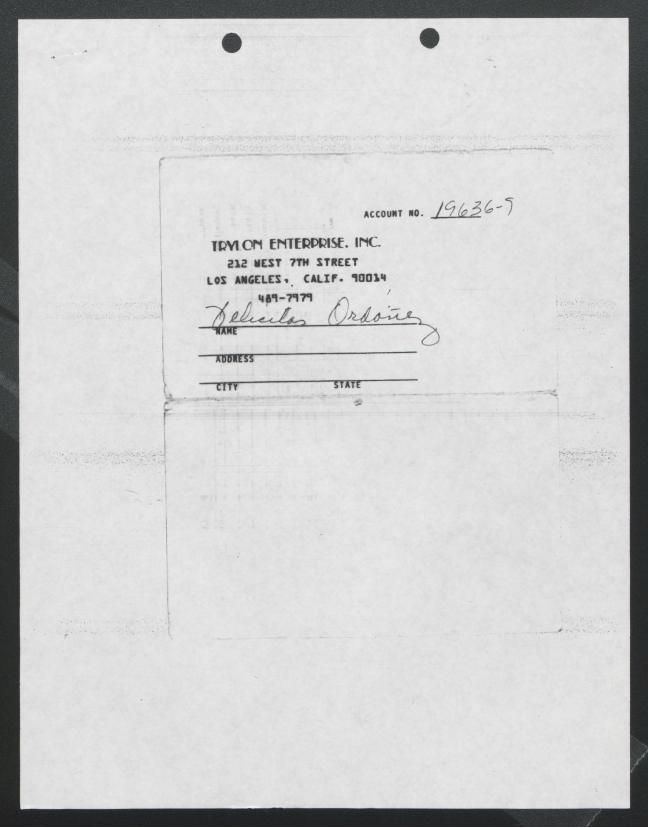 ACCOUNT NO. 19636-9
TRYLON ENTERPRISE, INC.
212 WEST 7TH STREET
LOS ANGELES, CALIF. 90014
489-7979
Felicitas Ordoñez
NAME
ADDRESS
CITY STATE